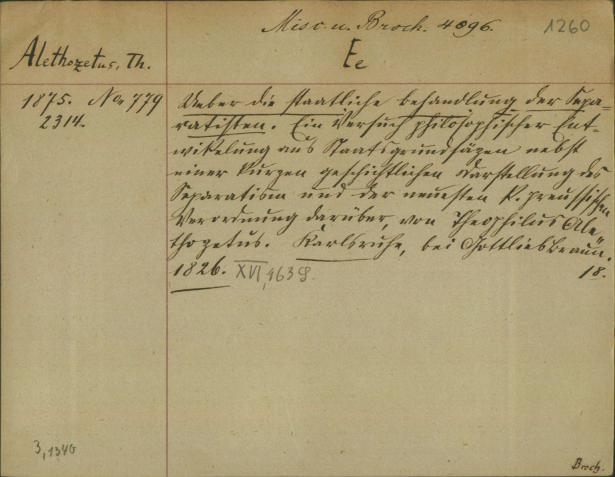 Misc. u. Broch. 4896.
1260
Alethozetus, Th.
Ee
1875. No 779
2314.
Ueber die staatliche Behandlung der Sepa-
ratisten. Ein Versuch philosophischer Ent-
wikelung aus Staatsgrundsäzen nebst
einer kurzen geschichtlichen Darstellung des
Separatism und der neuesten K. preussischen
Verordnung darüber, von Theophilus Ale-
thozetus. Karlsruhe, bei Gottlieb Braun.
1826. XVI, 163 S.
18.
3,1340
Broch.